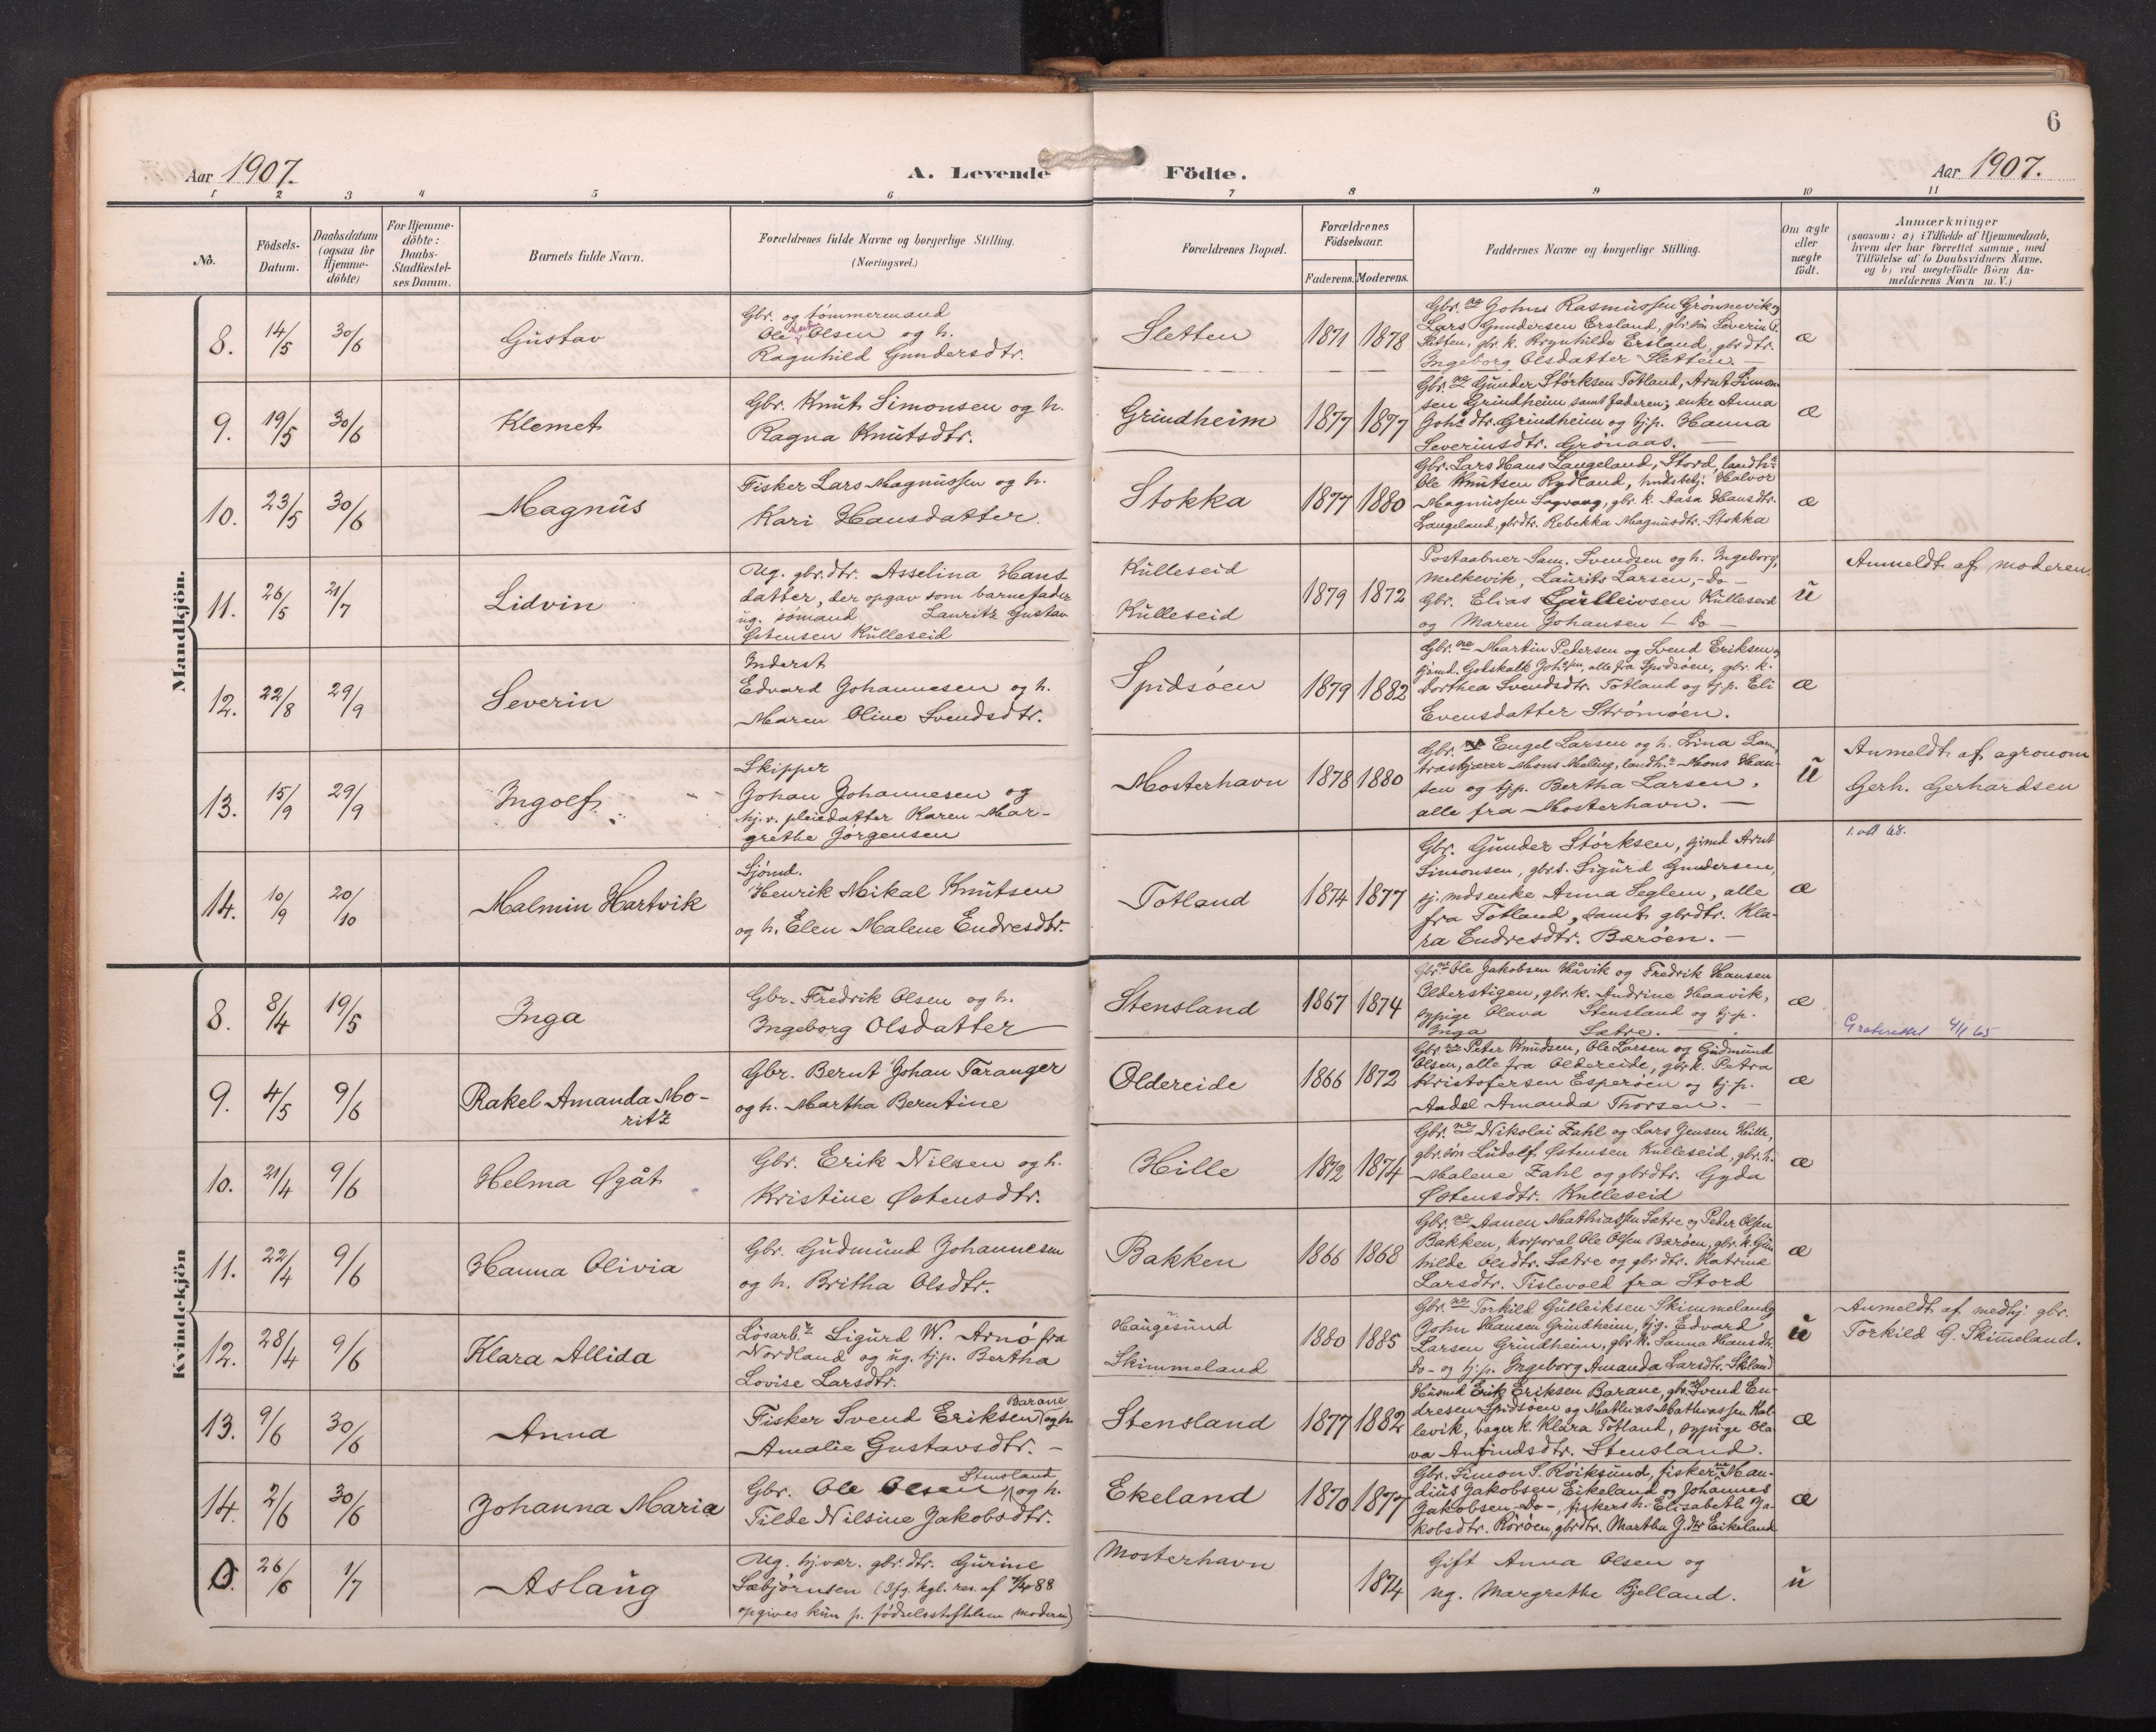 6
Aar 1907.
A. Levende Födte.
Aar 1907.
1 2 3 4 5 6 7 8 9 10 11
No.
Födsels-
Datum.
Daabsdatum
(ogsaa for
Hjemme-
döbte)
For Hjemme-
döbte:
Daabs-
Stadfæstel-
ses Datum.
Barnets fulde Navn.
Forældrenes fulde Navne og borgerlige Stilling.
(Næringsvei.)
Forældrenes Bopæl.
Forældrenes
Födselsaar.
Faderens. Moderens.
Faddernes Navne og borgerlige Stilling.
Om ægte
eller
uægte
födt.
Anmærkninger
(saasom: a) i Tilfælde af Hjemmedaab,
hvem der har forrettet samme, med
Tilföielse af to Daabsvidners Navne.
og b) ved uægtefödte Börn An-
melderens Navn m. V.)
Mandkjön.
8. 14/5 30/6 Gustav
Gbr. og tømmermand
Ole Olsen og h.
Ragnhild Gundersdtr.
Sletten 1871 1878
Gbr.ne Johns Rasmussen Grønnevik og
Lars Gundersen Ersland, gbr.søn Severin P.
Sletten, gbr. k. Brynhilde Ersland, gbrdtr.
Ingeborg Olsdatter Sletten. —
æ
9. 19/5 30/6 Klemet
Gbr. Knut Simonsen og h.
Ragna Knutsdtr.
Grindheim 1877 1877
Gbr.ne Gunder Størksen Totland, Arnt Simon-
sen Grindheim samt faderen; enke Anna
Joh.dtr. Grindheim og tj.p. Hanna
Severinsdtr. Grönaas. —
æ
10. 23/5 30/6 Magnus
Fisker Lars Magnussen og h.
Kari Hansdatter.
Stokka 1877 1880
Gbr. Lars Hans Langeland, Stord, landh.
Ole Knutsen Rydland, hndsbetj. Halvor
Magnussen Sagvaag, gbr. k. Aasa Hansdtr.
Langeland, gbrdtr. Rebekka Magnusdtr. Stokka
æ
11. 26/5 21/7 Lidvin
Ug. gbr.dtr. Asselina Hans-
datter, der opgav som barnefader
ug. sømand Lauritz Gustav
Østensen Kulleseid
Kulleseid
Kulleseid
1879 1872
Postaabner Sam. Svendsen og h. Ingeborg,
Melkevik, Laurits Larsen, - Do -
Gbr. Elias Kulleseid
og Maren Johansen - Do -
u
Anmeldt af moderen.
12. 22/8 29/9 Severin
Inderst
Edvard Johannesen og h.
Maren Oline Svendsdtr.
Spidsøen 1879 1882
Gbr.ne Martin Pedersen og Svend Eriksen og
tjmd. Godskalk Johssen, alle fra Spidsøen, gbr. k.
Dorthea Svendsdtr. Totland og tj.p. Eli
Evensdatter Strømøen.
æ
13. 15/9 29/9 Ingolf
Skipper
Johan Johannesen og
hj.v. pleiedatter Karen Mar-
grethe Jørgensen
Mosterhavn 1878 1880
Gbr. Engel Larsen og h. Lina Lam,
Mons Meling, landh. Mons Han-
sen og tj.p. Bertha Larsen,
alle fra Mosterhavn. —
u
Anmeldt af agronom
Gerh. Gerhardsen
14. 10/9 20/10 Malmin Hartvik
Sjømd.
Henrik Mikal Knutsen
og h. Elen Malene Endresdtr.
Totland 1874 1877
Gbr. Gunder Størksen, tjmd Arnt
Simonsen, gbrs. Sigurd Gundersen,
sj.mdsenke Anna Seglem, alle
fra Totland, samt gbrdtr. Kla-
ra Endresdtr. Børøen. —
æ
1. att 68.
Kvindekjön
8. 8/4 19/5 Inga
Gbr. Fredrik Olsen og h.
Ingeborg Olsdatter
Stensland 1867 1874
Gbr.ne Ole Jakobsen Håvik og Fredrik Hansen
Olderstigen, gbr. k. Andrine Haavik,
sypige Olava Stensland og tj.p.
Inga Sætre. —
æ
9. 4/5 9/6 Rakel Amanda Mo-
ritz
Gbr. Bernt Johan Taranger
og h. Martha Berntine
Oldereide 1866 1872
Gbr.ne Peter Knudsen, Ole Larsen og Gudmund
Olsen, alle fra Oldereide, gbr.k. Petra
Kristofersen Esperøen og tj.p.
Aadel Amanda Thorsen. —
æ
10. 21/4 9/6 Helma Øgåt
Gbr. Erik Nilsen og h.
Kristine Østensdtr.
Hille 1872 1874
Gbr.ne Nikolai Zahl og Lars Jensen Hille,
gbr.søn Ludolf Østensen Kulleseid, gbr. h.
Malene Zahl og gbrdtr. Gyda
Østensdtr. Kulleseid
æ
11. 22/4 9/6 Hanna Olivia
Gbr. Gudmund Johannesen
og h. Britha Olsdtr.
Bakken 1866 1868
Gbr.ne Aanen Mathiassen Sætre og Peder Olsen
Bakken, korporal Ole Olsen Børøen, gbr. k. Gun-
hilde Olsdtr. Sætre og gbrdtr. Katrine
Larsdtr. Tislevold fra Stord
æ
12. 28/4 9/6 Klara Allida
Løsarb. Sigurd W. Arnø fra
Nordland og ug. tj.p. Bertha
Lovise Larsdtr.
Haugesund
Skimmeland
1880 1885
Gbr.ne Torkild Gulleiksen Skimmeland og
John Hansen Grindheim, tjg. Edvard
Larsen Grindheim, gbr. k. Sanna Hansdtr.
Do - og tj.p. Ingeborg Amanda Larsdtr. Skland
u
Anmeldt af medhj. gbr.
Torkild G. Skimeland.
13. 9/6 30/6 Anna
Fisker Svend Eriksen Barane og h
Amalie Gustavsdtr. -
Stensland 1877 1882
Husmd Erik Eriksen Barane, gbr.ne Svend En-
dresen Spidsøen og Mathias Mathiassen Kal-
levik, bager k. Klara Totland, sypige Ola-
va Anfindsdtr. Stensland.
æ
14. 2/6 30/6 Johanna Maria
Gbr. Ole Olsen Stensland og h.
Tilde Nilsine Jakobsdtr.
Ekeland 1870 1877
Gbr. Simon S. Røiksund, fisker.ne Man-
dius Jakobsen Eikeland og Johannes
Jakobsen - Do -, fiskers h. Elisabeth Ja-
kobsdtr. Rørøen, gbrdtr. Martha J.dtr Eikeland
æ
26/6 1/7 Aslaug
Ug. hj.vær. gbr.dtr. Gurine
Sæbjørnsen (Ifg. kgl. res. af 88
opgives kun p. fødselsstiftelsen moderen)
Mosterhavn 1874
Gift Anna Olsen og
ug. Margrethe Bjelland.
u